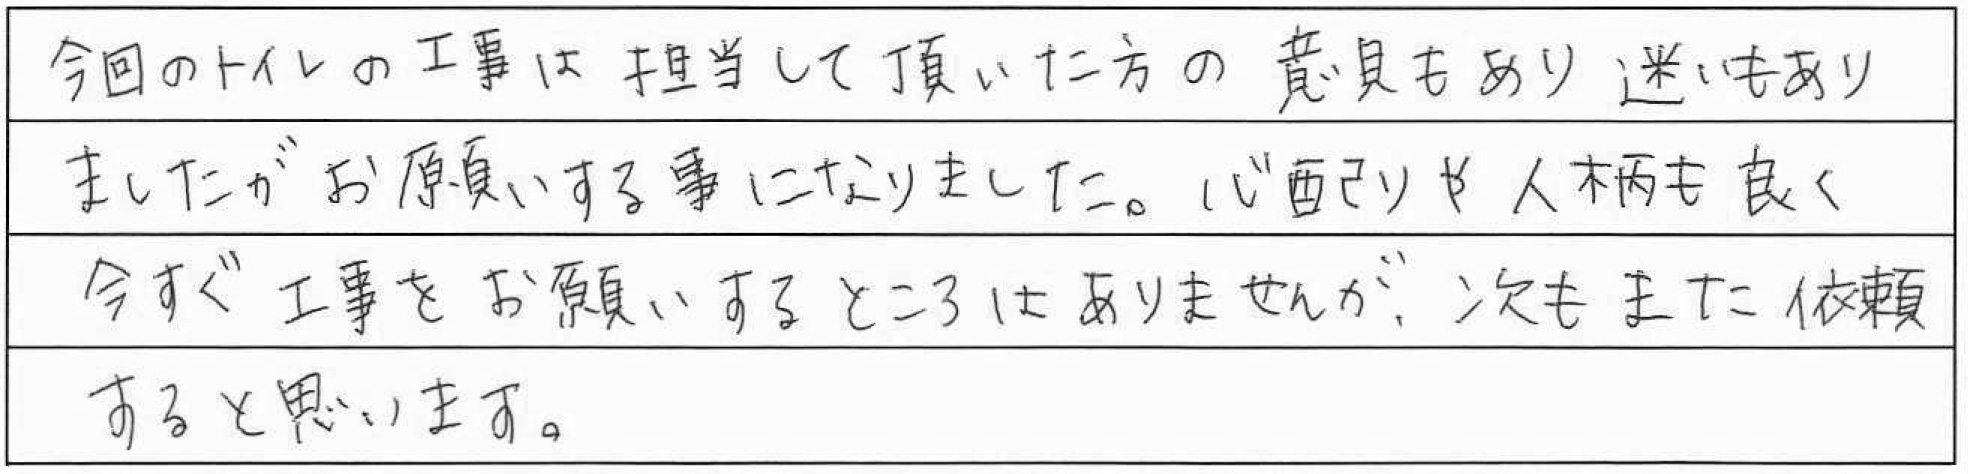 今回のトイレの工事は担当して頂いた方の意見もあり迷いもあり
ましたがお願いする事になりました。心配りや人柄も良く
今すぐ工事をお願いするところはありませんが、次もまた依頼
すると思います。